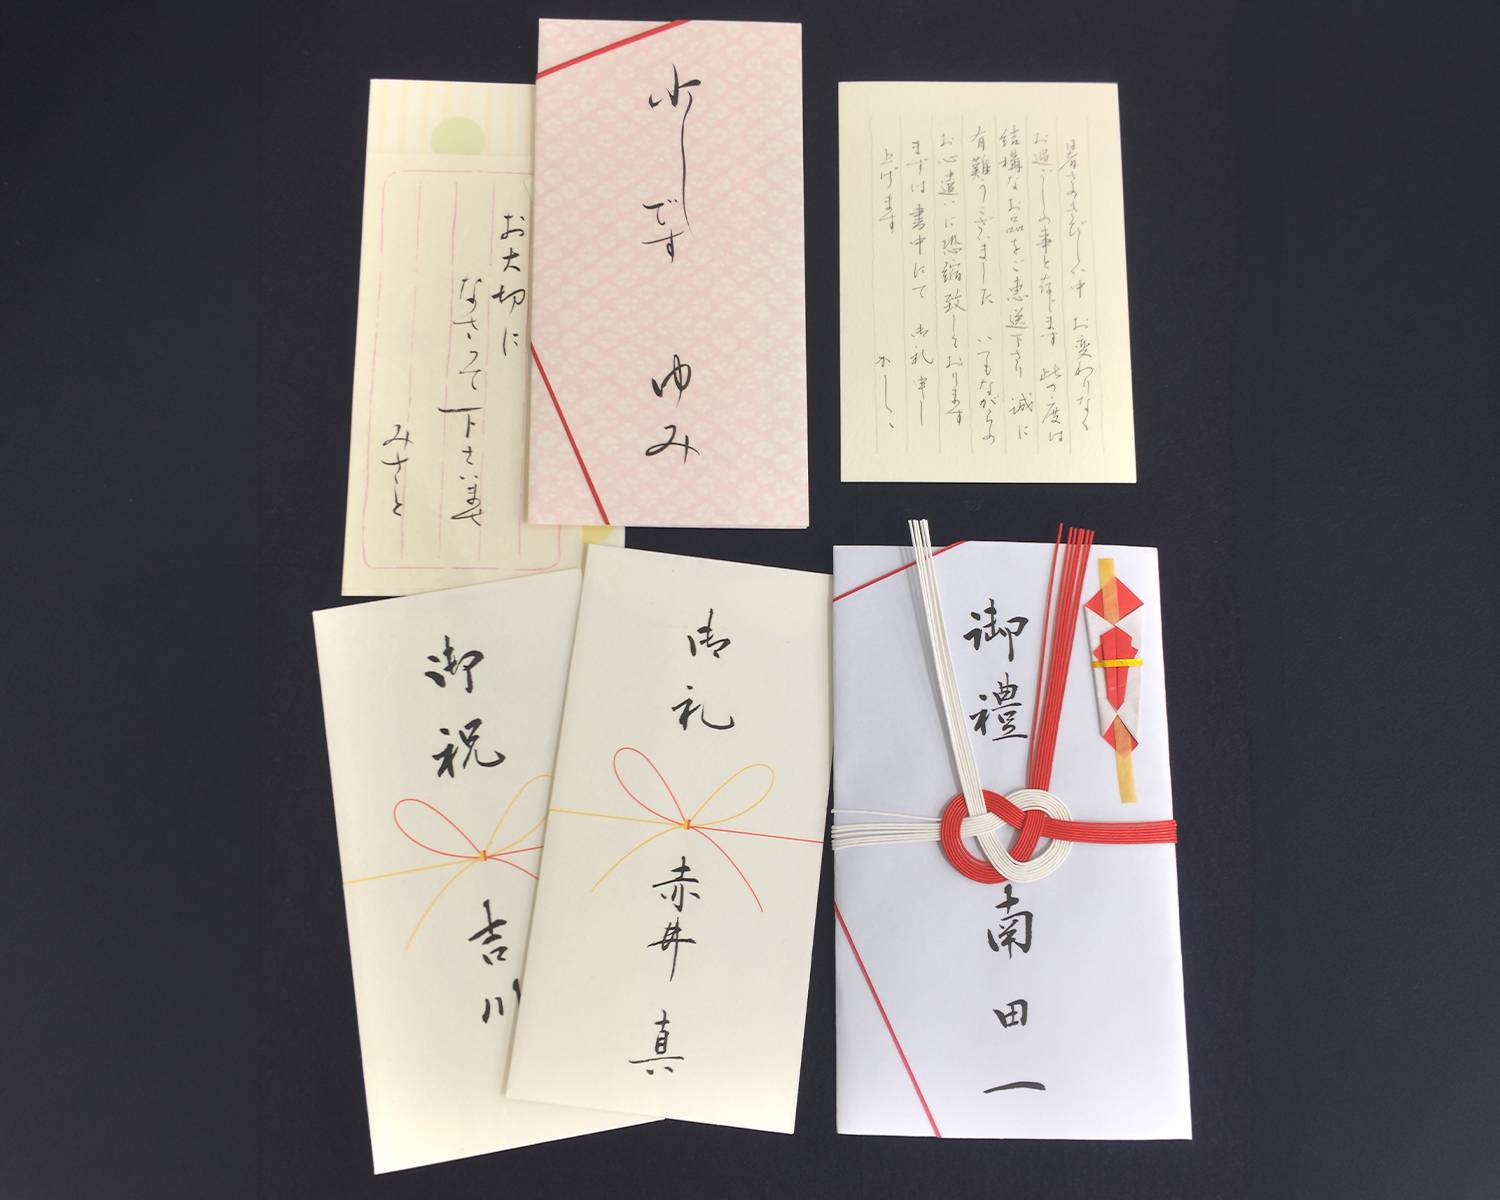 お大切に
なさって下さいませ
みさと
少しです
ゆみ
暑さのきびしい中 お変わりなく
お過ごしの事と存じます 此の度は
結構なお品をご恵送下さり 誠に
有難うございました いつもながらの
お心遣いに恐縮致しております
まずは書中にて 御礼申し
上げます
かしこ
御祝
吉川
御礼
赤井真
御禮
南田一